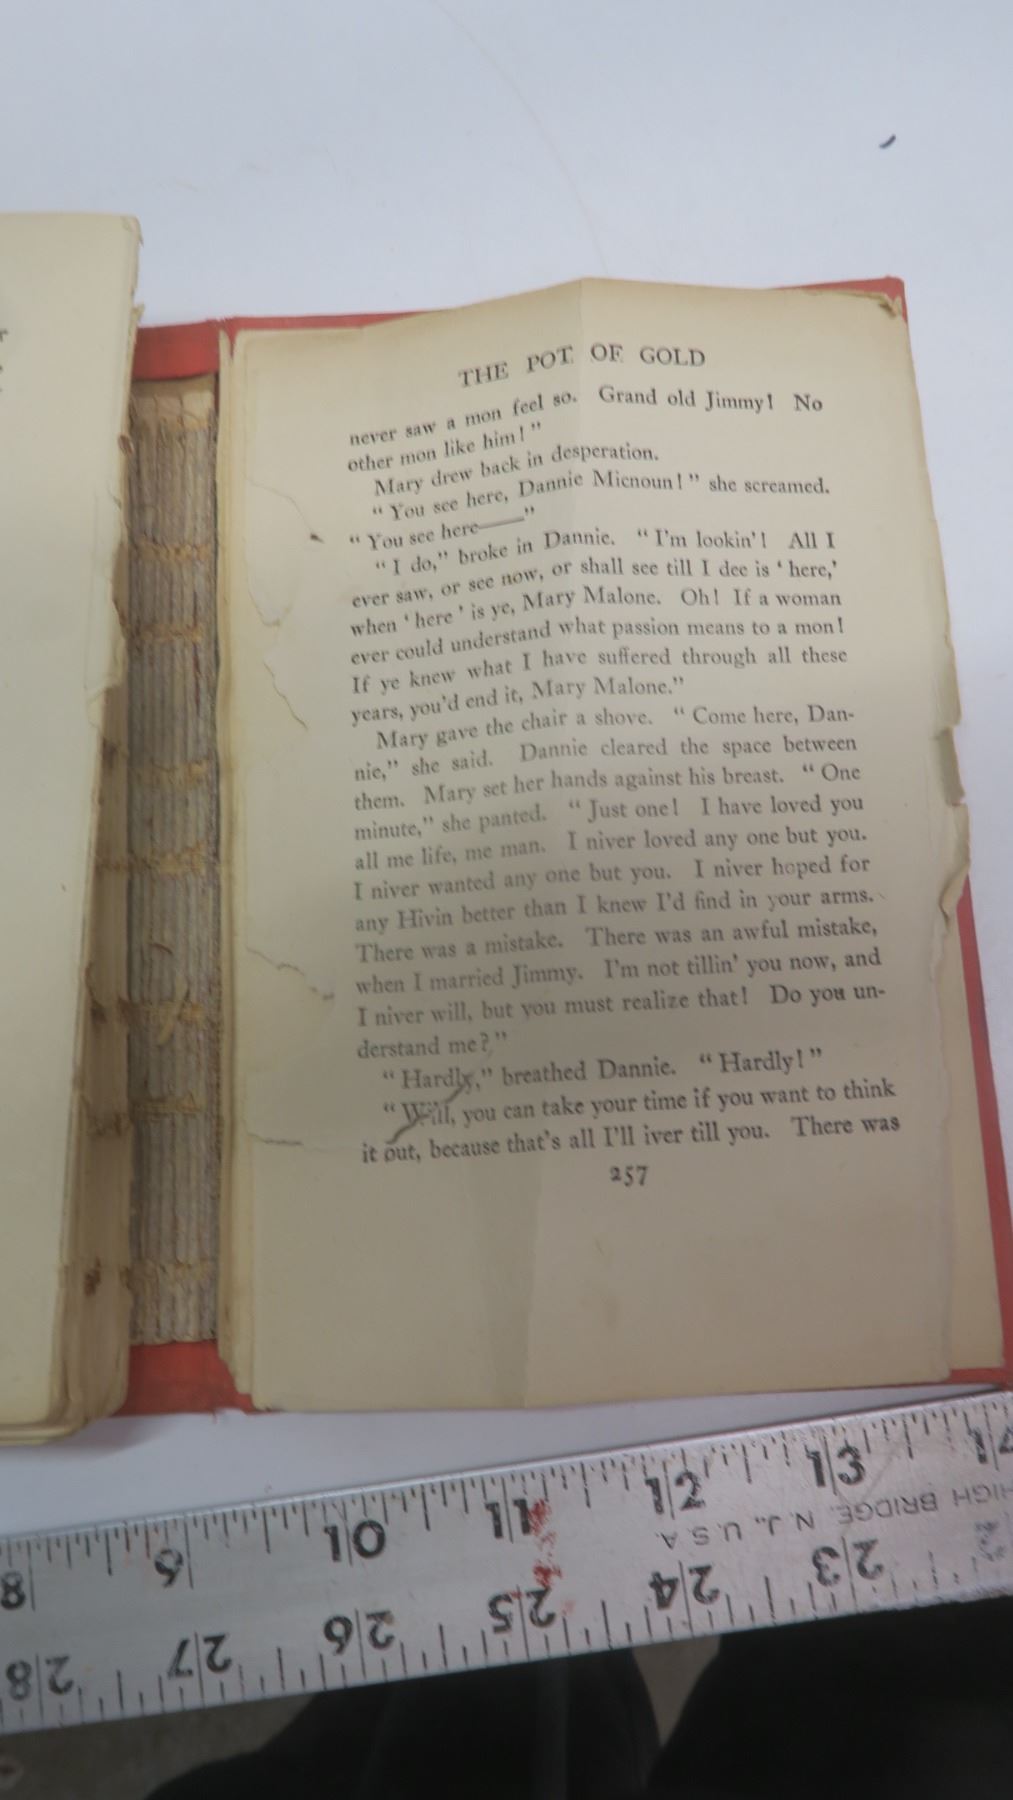 THE POT OF GOLD
never saw a mon feel so. Grand old Jimmy! No
other mon like him!”
Mary drew back in desperation.
“You see here, Dannie Micnoun!” she screamed.
“You see here——”
“I do,” broke in Dannie. “I'm lookin'! All I
ever saw, or see now, or shall see till I dee is ‘here,’
when ‘here’ is ye, Mary Malone. Oh! If a woman
ever could understand what passion means to a mon!
If ye knew what I have suffered through all these
years, you'd end it, Mary Malone.”
Mary gave the chair a shove. “Come here, Dan-
nie,” she said. Dannie cleared the space between
them. Mary set her hands against his breast. “One
minute,” she panted. “Just one! I have loved you
all me life, me man. I niver loved any one but you.
I niver wanted any one but you. I niver hoped for
any Hivin better than I knew I'd find in your arms.
There was a mistake. There was an awful mistake,
when I married Jimmy. I'm not tillin' you now, and
I niver will, but you must realize that! Do you un-
derstand me?”
“Hardly,” breathed Dannie. “Hardly!”
“Will, you can take your time if you want to think
it out, because that's all I'll iver till you. There was
257
8 9 10 11 12 13 14
HIGH BRIDGE, N.J., U.S.A.
28 27 26 25 24 23